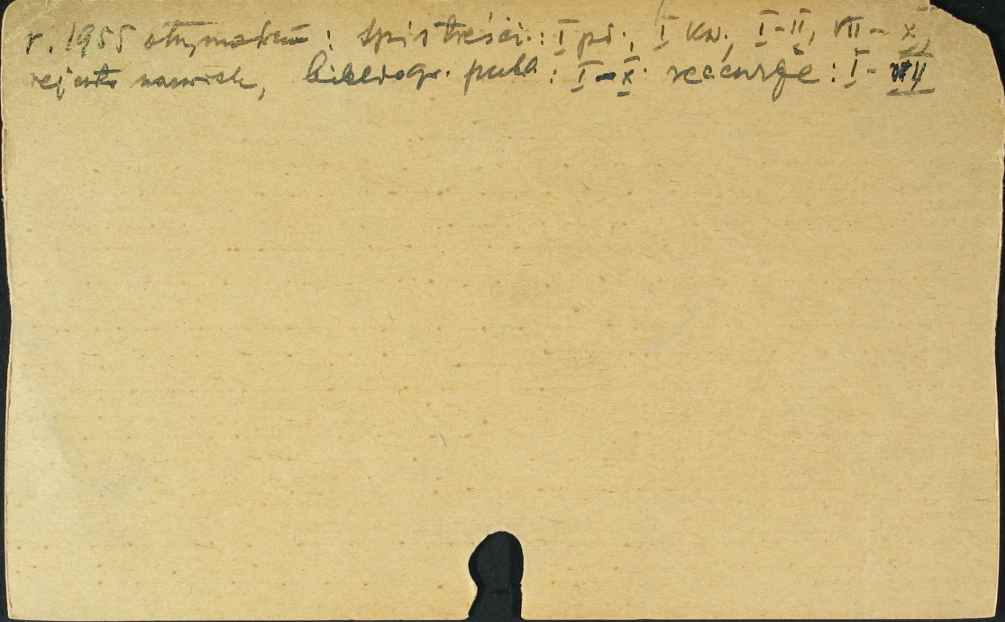 r. 1955 otrzymałem : spis treści : I pł., I kw., I-II, VII-X,
rejestr nazwisk, bibliogr. publ. : I-X. recenzje : I-VII